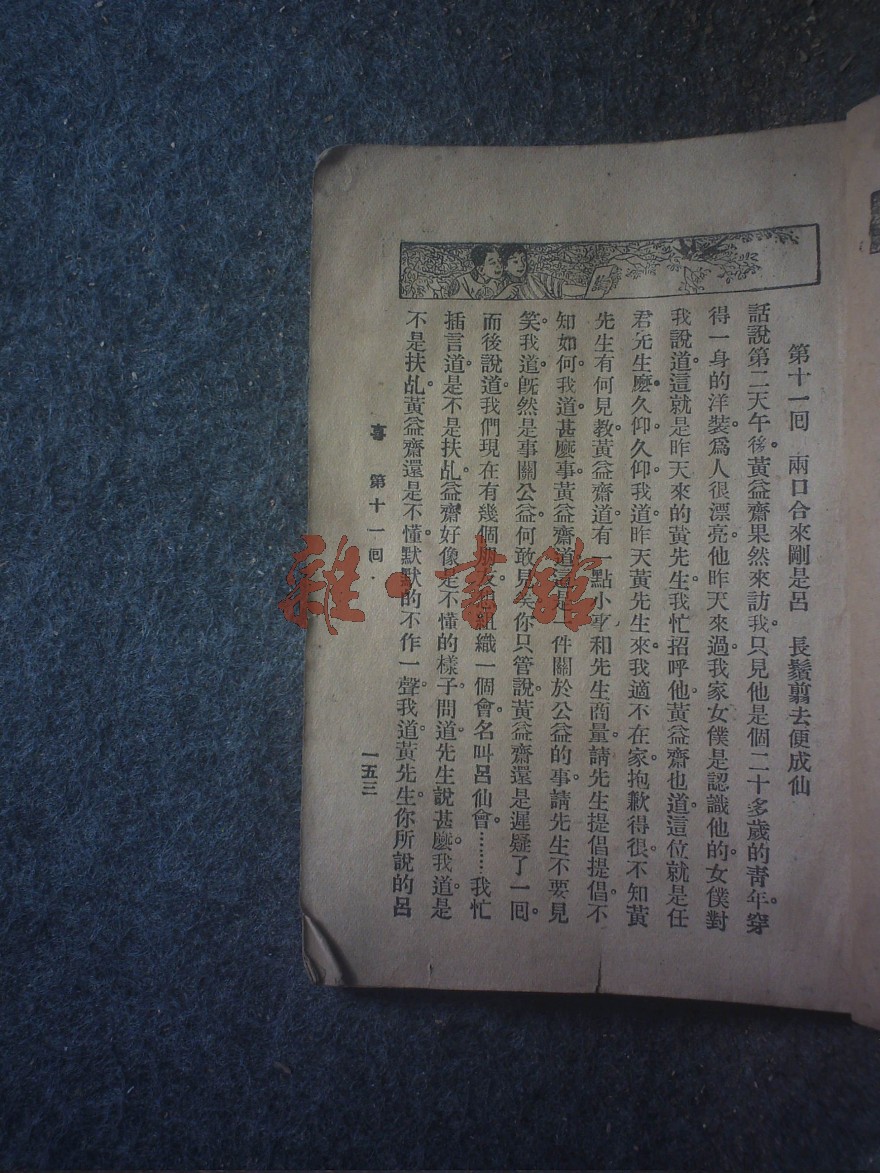 第十一回　兩口合來剛是呂　長鬚翦去便成仙
話說第二天午後。黃益齋果然來訪我。只見他是個二十多歲的青年。穿
得一身的洋裝。爲人很漂亮。他昨天來過。我家女僕是認識他的。女僕對
我說道。這就是昨天來的黃先生。我忙招呼他。黃益齋也道。這位就是任
君先生麼。久仰久仰。我道。昨天黃先生來。我適不在家。抱歉得很。不知黃
先生有何見教。黃益齋道。有一點小事。和先生商量。請先生提倡提倡。不
知如何。我道。甚麼事。黃益齋道。這是一件關於公益的事。請先生不要見
笑。我道。旣然是事關公益。何敢見笑。你只管說。黃益齋還是遲疑了一回。
而後說道。我們現在有幾個朋友。想組織一個會。名叫呂仙會………我忙
插言道。是不是扶乩。益齋好像是不懂的樣子。問道。先生說甚麼。我道。是
不是扶乩。黃益齋還是不懂。默默的不作一聲。我道。黃先生。你所說的呂
喜　第十一回　一五三
雜·書館